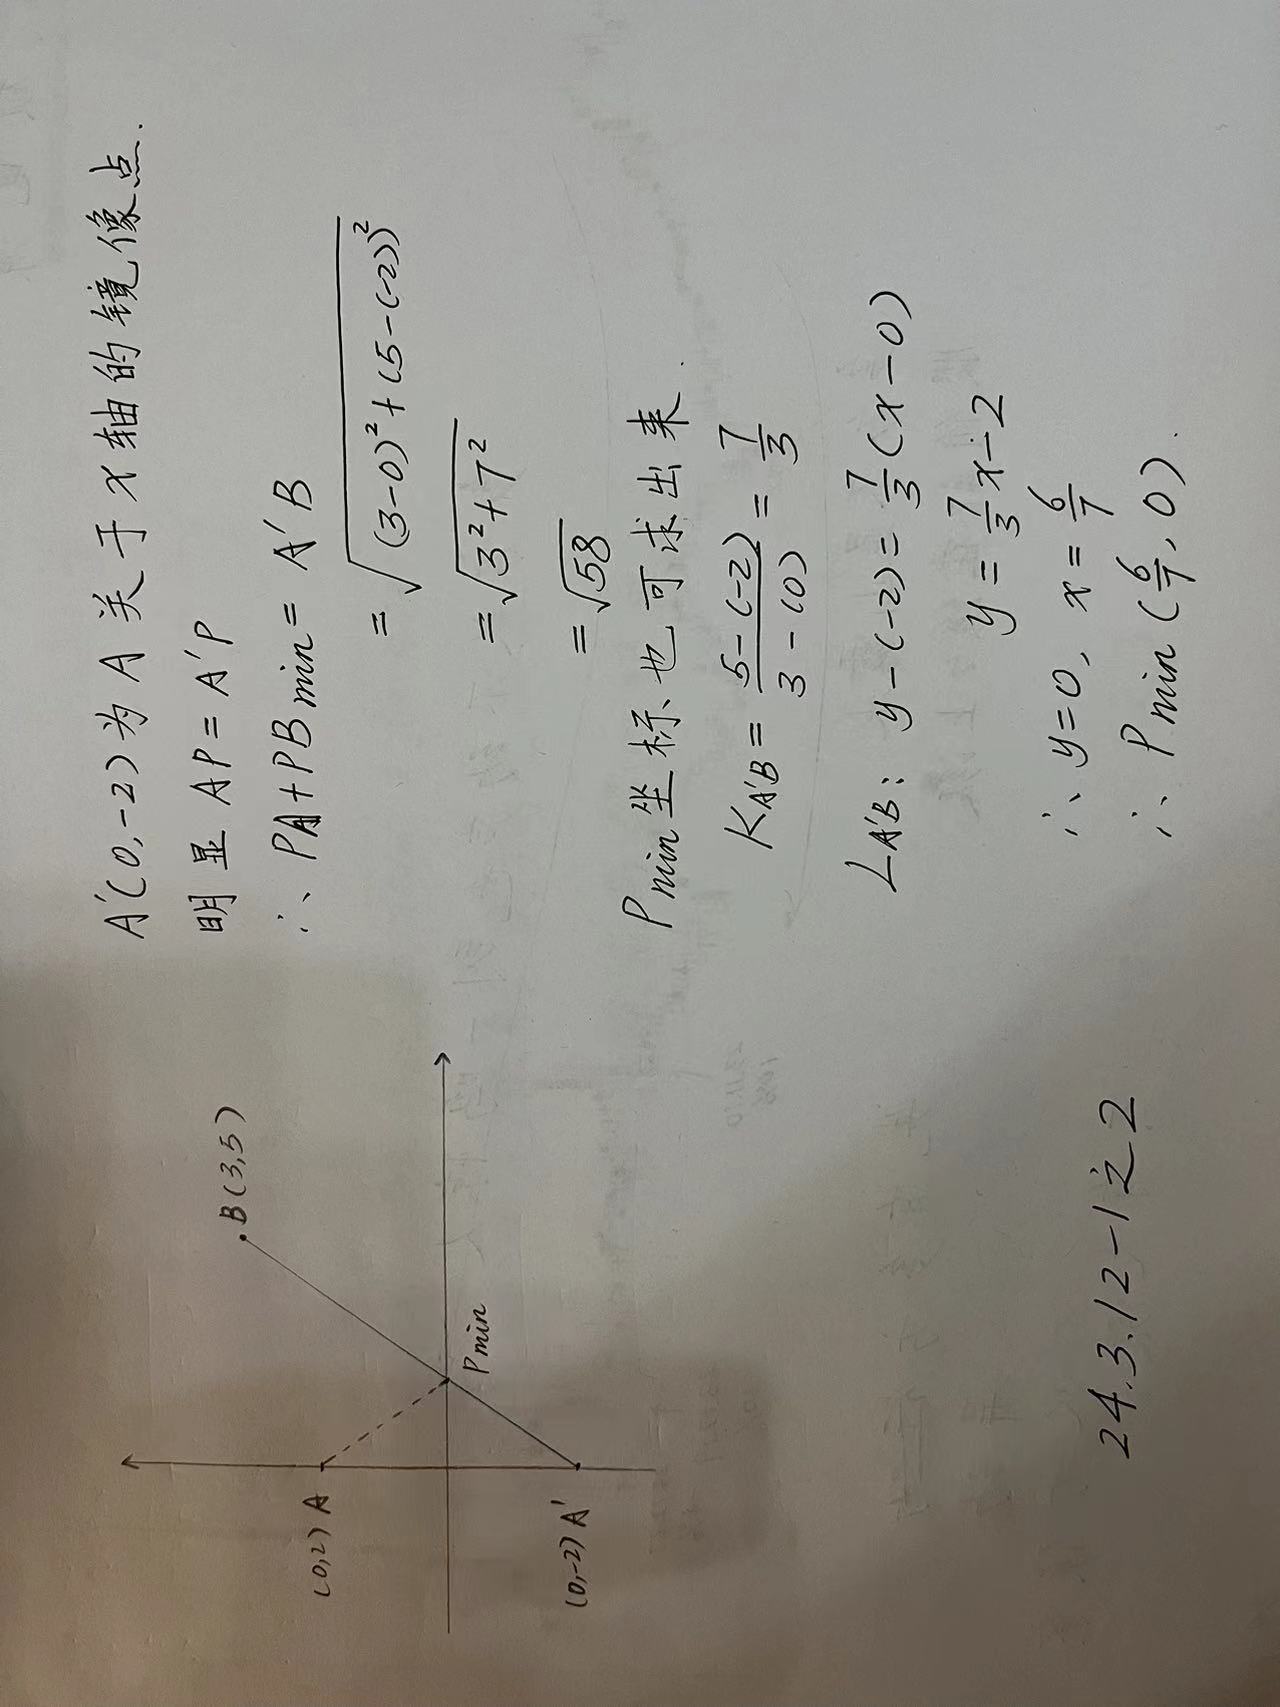 A'(0,-2)为A关于x轴的镜像点.
明显 AP=A'P
∴ PA+PB min = A'B
= √((3-0)²+(5-(-2))²)
= √(3²+7²)
= √58
Pmin坐标也可求出来.
K_A'B = (5-(-2))/(3-(0)) = 7/3
L_A'B: y-(-2)= 7/3(x-0)
y = 7/3x-2
∴ y=0, x= 6/7
∴ Pmin(6/7, 0).
B(3,5)
(0,2) A
Pmin
(0,-2) A'
24.3.12-1之2